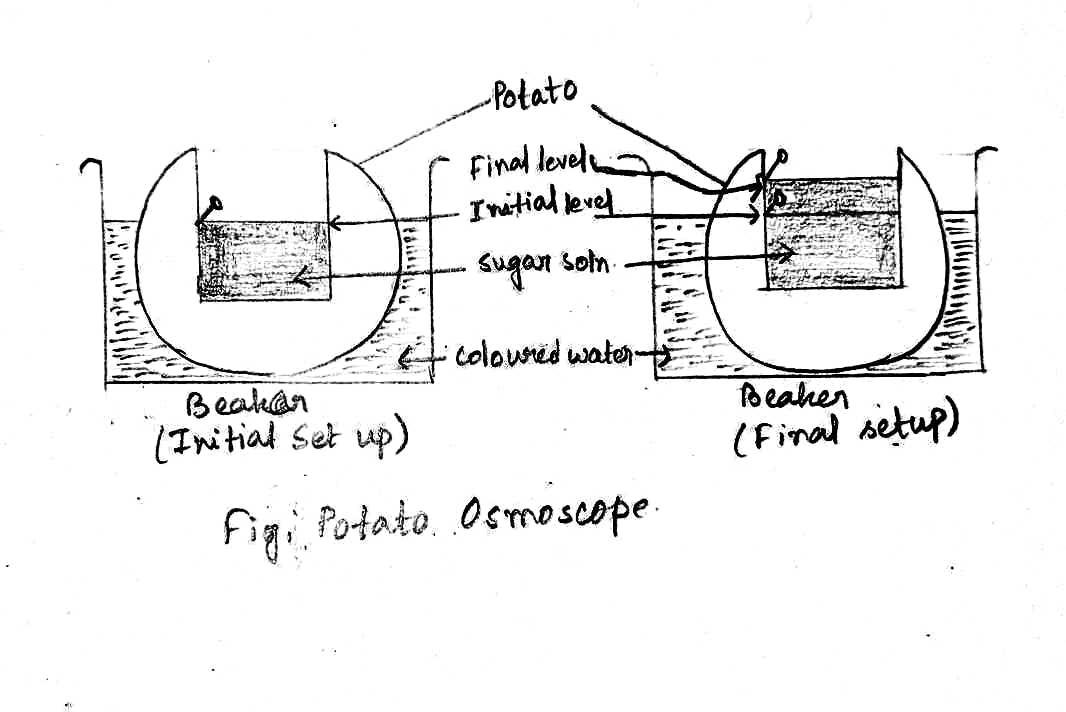 Potato
Final level
Initial level
sugar soln.
coloured water
Beaker
(Initial Set up)
Beaker
(Final setup)
Fig: Potato Osmoscope.